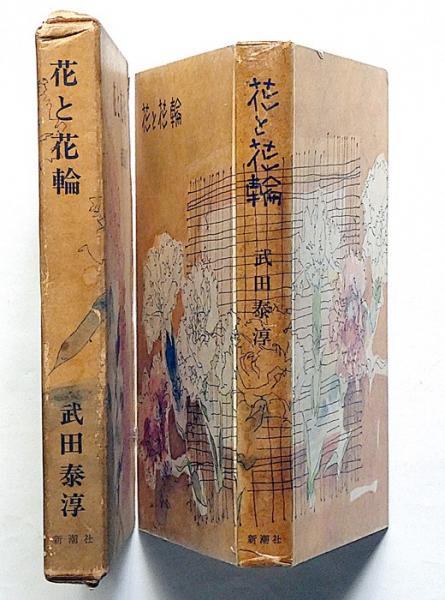 花と花輪
武田泰淳
新潮社
花と花輪
花と花輪
武田泰淳
新潮社